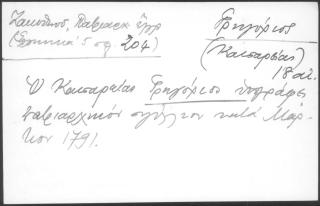 Ζακύνθου, Πατριαρχ. Ἔγγρ
(Σιγιλλικά 5 σφ. 204)
Γρηγόριος
(Καισαρείας)
18 αἰ.
Ὁ Καισαρείας Γρηγόριος ὑπογράφει
πατριαρχικόν σιγίλλιον κατά Μάρ-
τιον 1791.